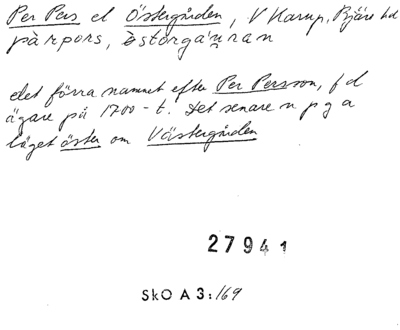 Per Pers el Östergården, V Karup, Bjäre hd
pàrpors, èstərga̹u̹ran
det förra namnet efter Per Persson, f d
ägare på 1700-t. Det senare n p g a
läget öster om Västergården
27941
SkO A 3:169